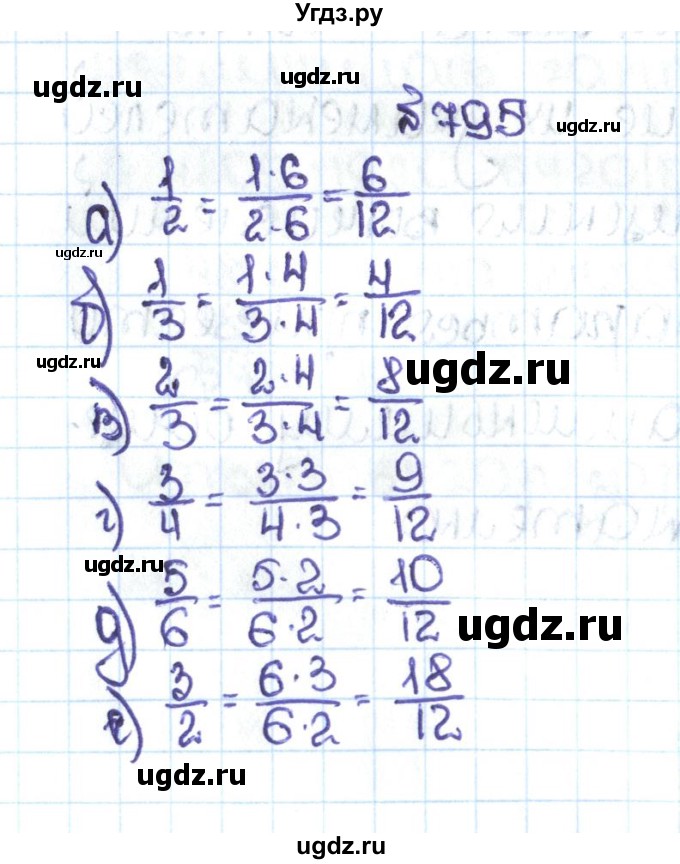 Угдз.ру
ugdz.ru ugdz.ru
№795 ugdz.ru
а) 1/2 = 1·6/2·6 = 6/12
ugdz.ru
б) 1/3 = 1·4/3·4 = 4/12
ugdz.ru ugdz.ru
в) 2/3 = 2·4/3·4 = 8/12
г) 3/4 = 3·3/4·3 = 9/12
ugdz.ru
д) 5/6 = 5·2/6·2 = 10/12
ugdz.ru
е) 3/2 = 6·3/6·2 = 18/12
ugdz.ru
ugdz.ru